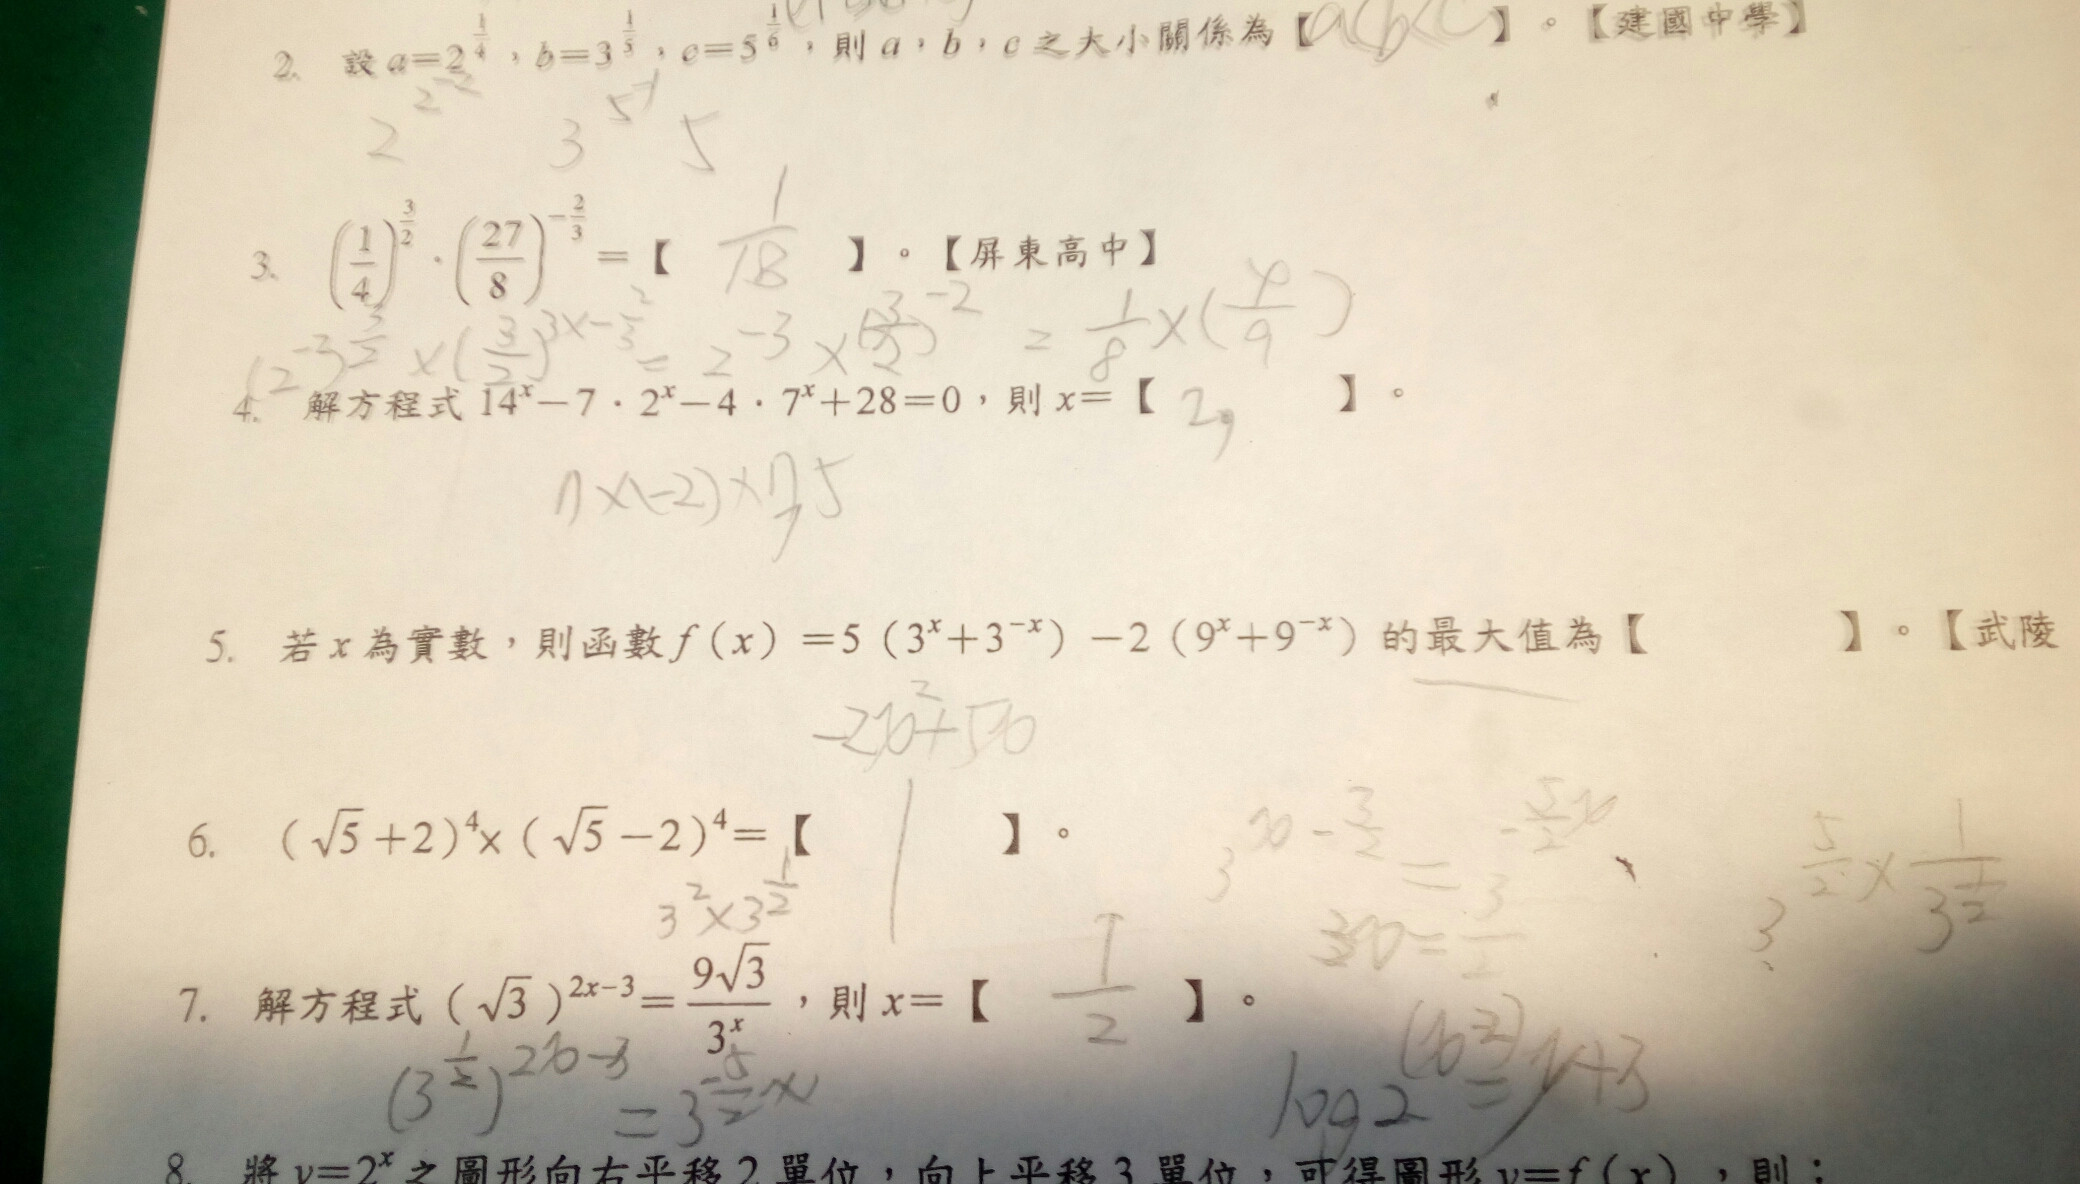 2. 設 a=2^{1/4}，b=3^{1/5}，c=5^{1/6}，則 a，b，c 之大小關係為【a<b<c】。【建國中學】
2^{-2} 5^{-1}
2 3 5
3. (1/4)^{3/2}·(27/8)^{-2/3}=【1/18】。【屏東高中】
×(3/2)^{3×-2/3} = 2^{-3}×(3/2)^{-2} = 1/8×(4/9)
4. 解方程式 14^x－7·2^x－4·7^x＋28=0，則 x=【2,】。
5. 若 x 為實數，則函數 f(x)=5(3^x+3^{-x})－2(9^x+9^{-x}) 的最大值為【 】。【武陵
-2x²+5x
6. (√5+2)^4×(√5－2)^4=【1】。
3^{x-3/2} = 
3^2×3^{1/2}
3^{5/2}×1/3^{1/2}
7. 解方程式 (√3)^{2x-3}=9√3/3^x，則 x=【1/2】。
(3^{1/2})^{2x-3} = 3^{-5/2x}
8. 將 y=2^x 之圖形向右平移 2 單位，向上平移 3 單位，可得圖形 y=f(x)，則：